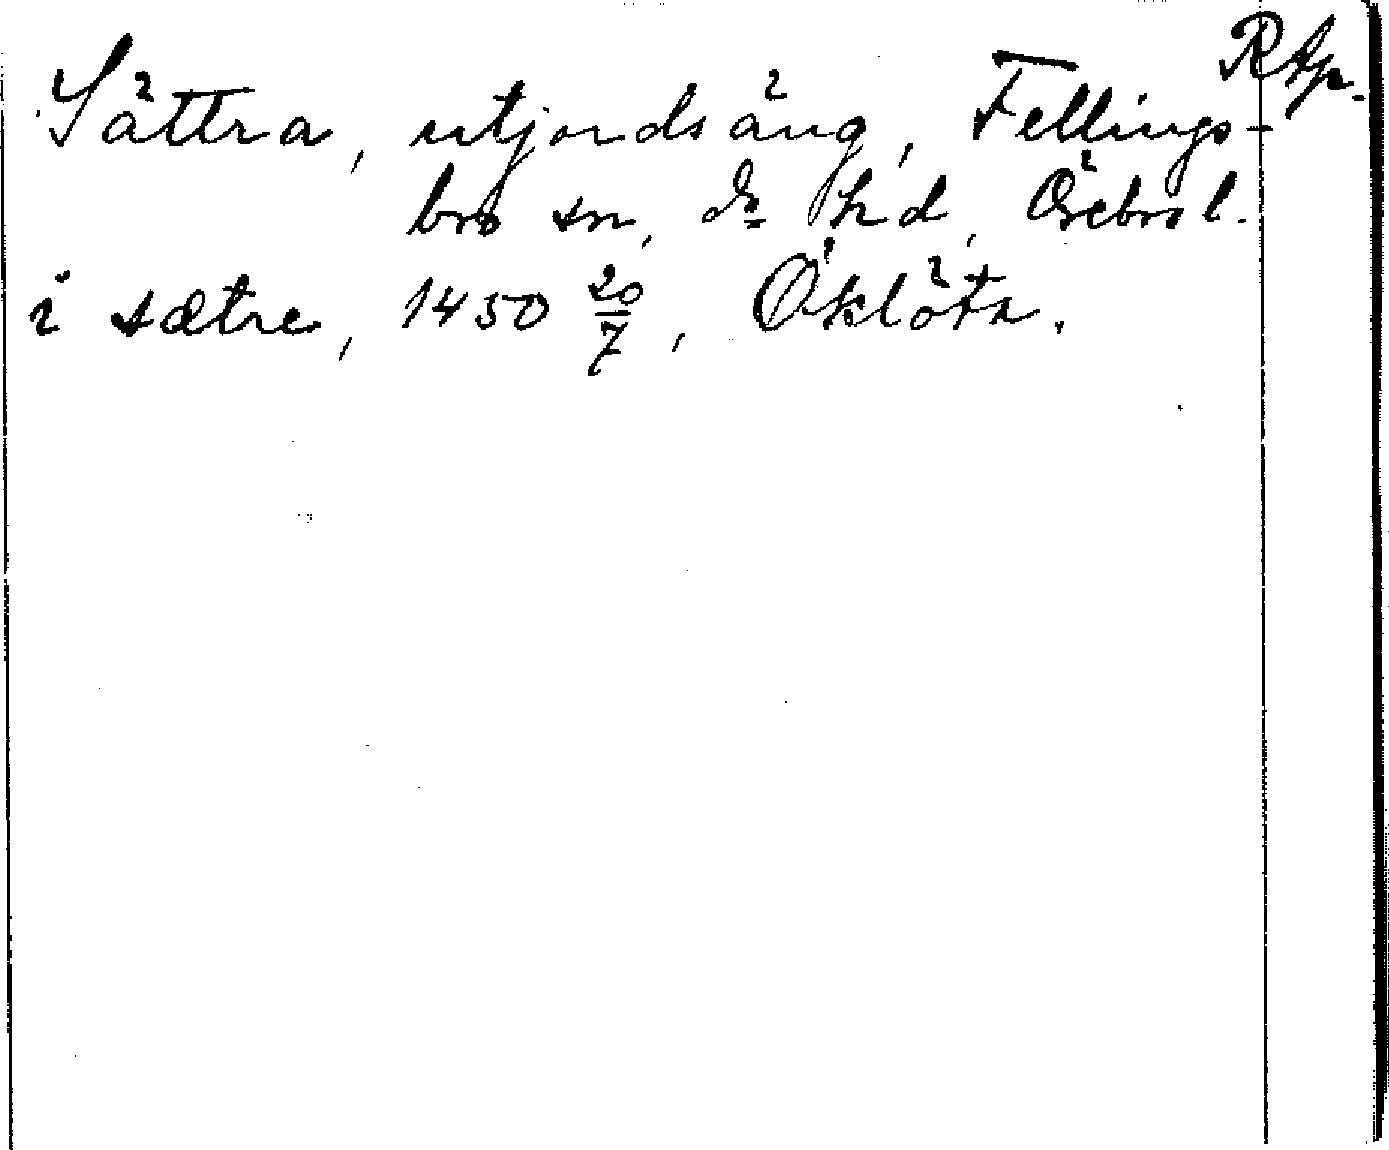 Rtp.
Sättra, utjordsäng, Fellings-
bro sn, do hd, Örebro l.
i sætre, 1450 20/7, Öklöta.